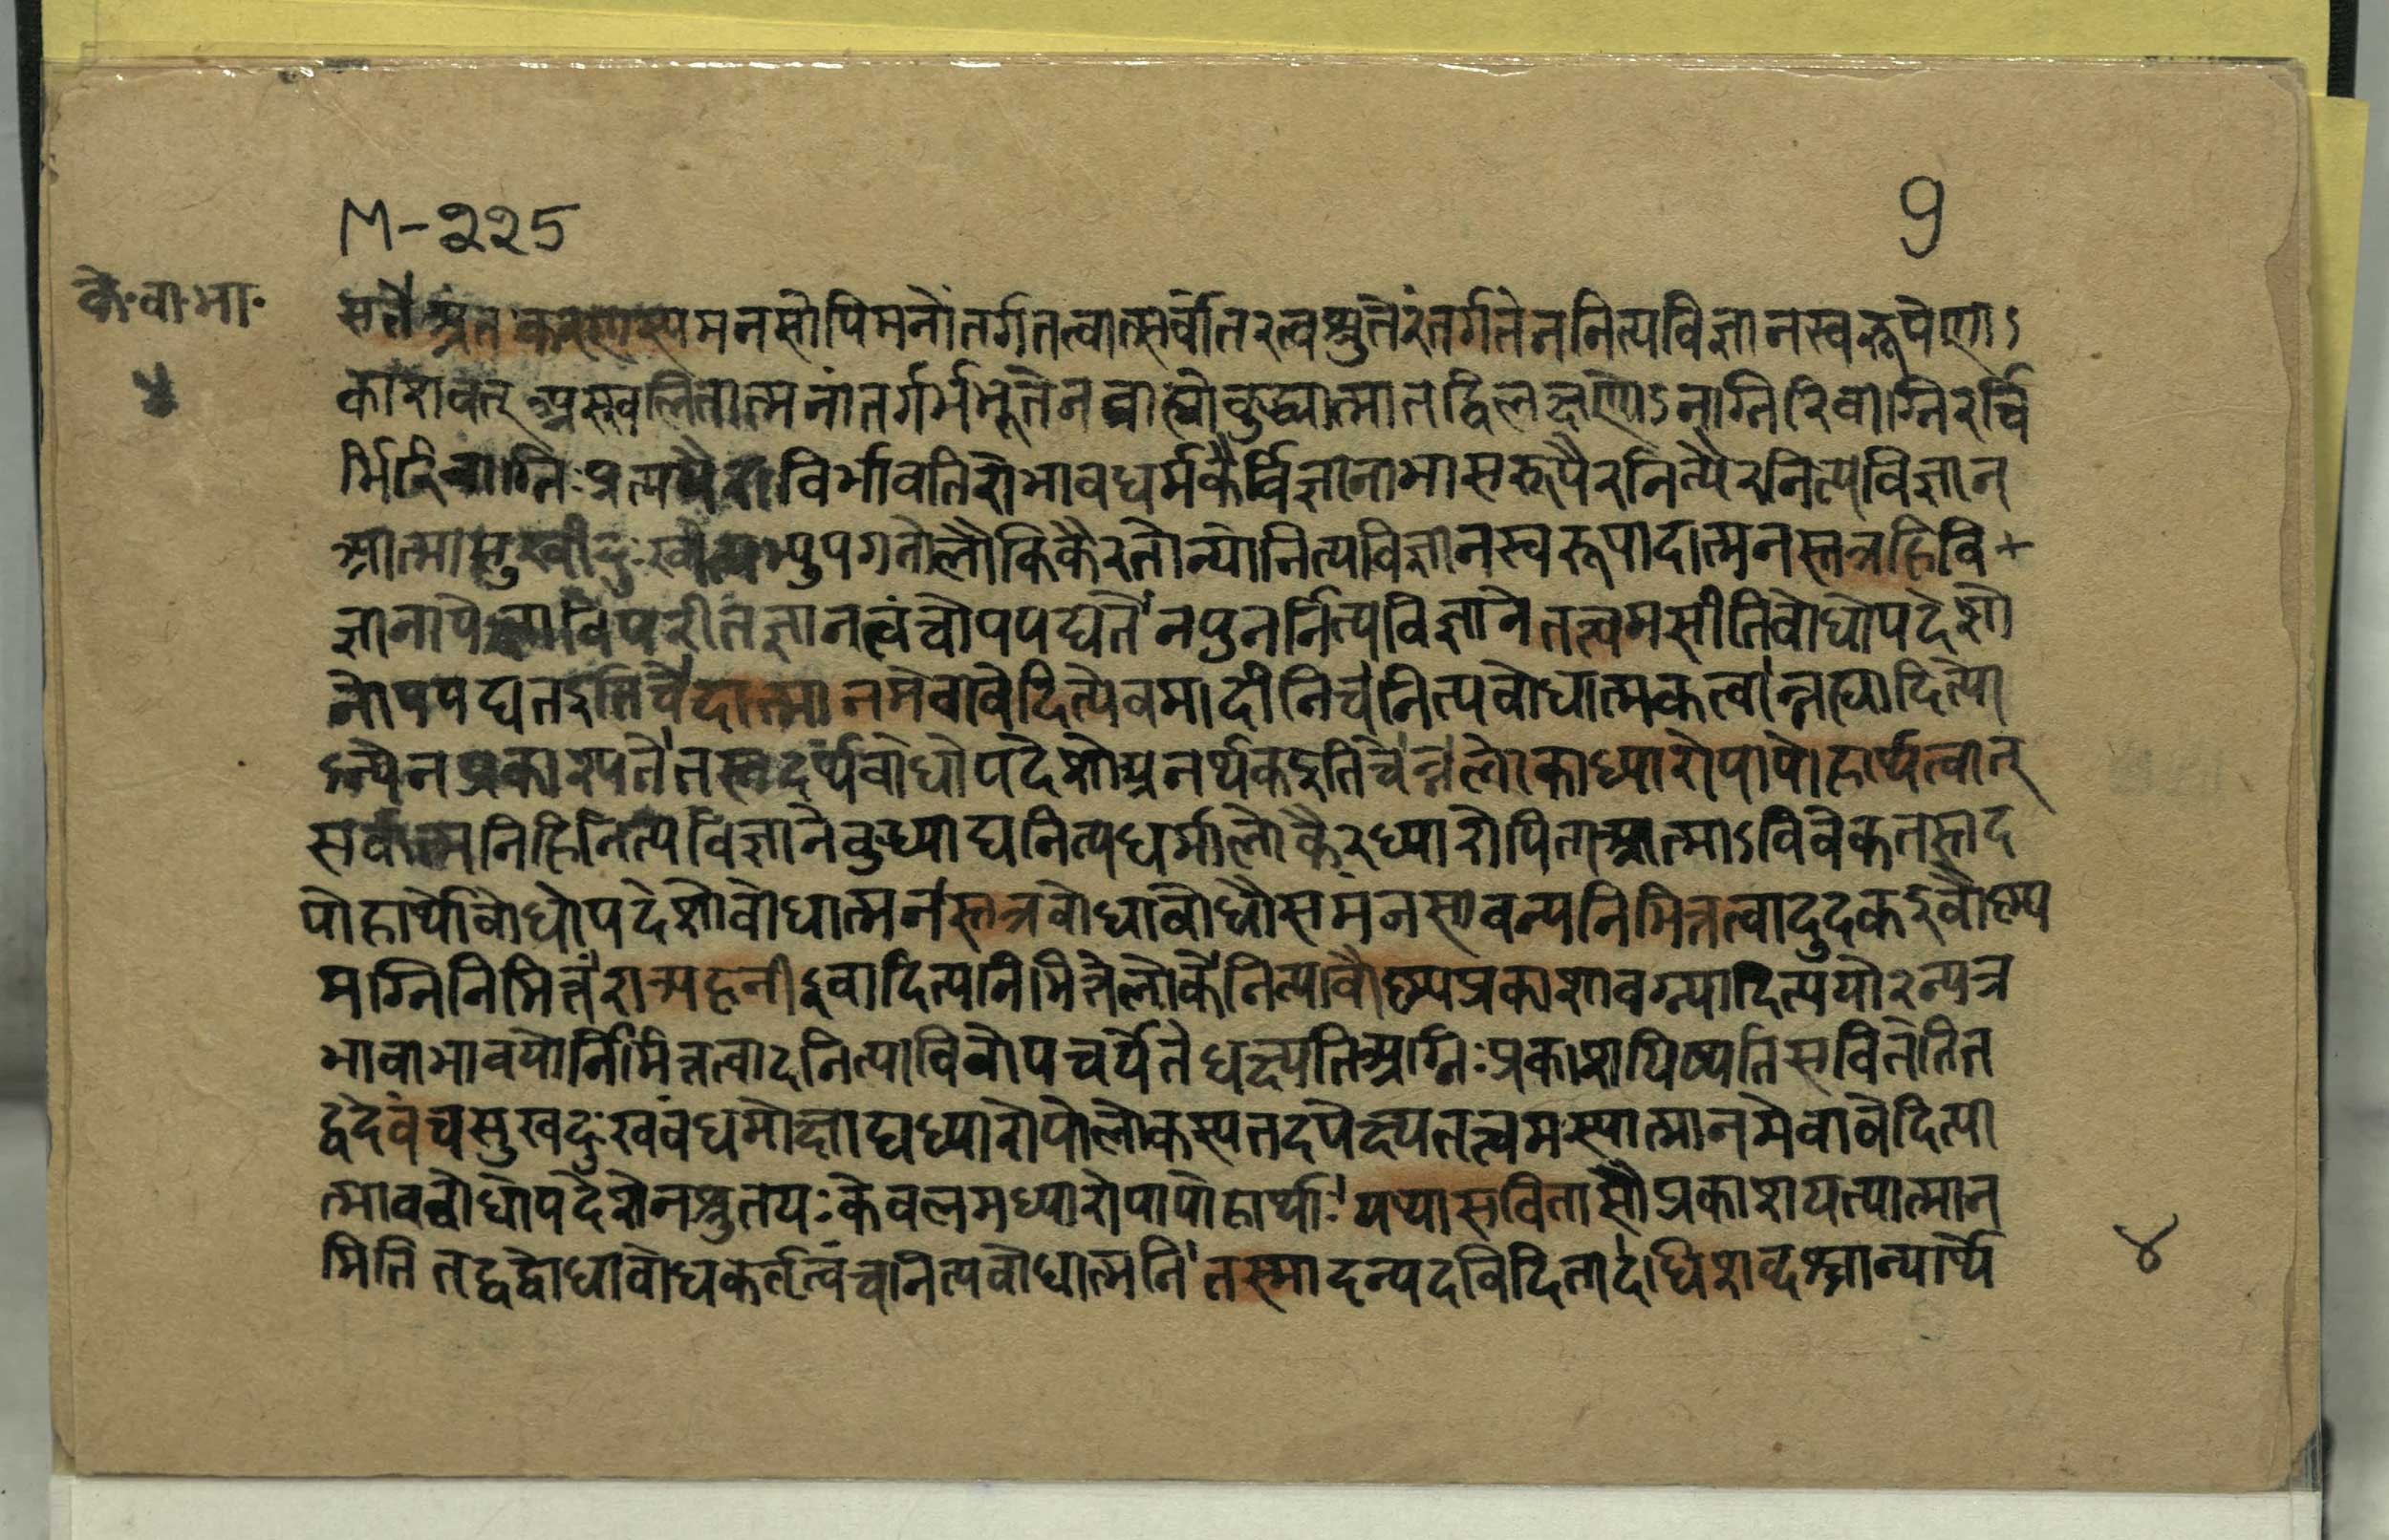 M-225
9
के·वा·भा·
४
सते अंतःकरणस्यमनसोपिमनोंतर्गतत्वात्सर्वांतरत्वश्रुतेरंतर्गतेननित्यविज्ञानस्वरूपेणाऽ
काशवत् अप्रस्खलितात्मनांतर्गर्भभूतेनबाह्योबुद्ध्यात्मातद्विलक्षणोऽनग्निरिवाग्निरर्चि
र्भिरिवाग्निःप्रत्ययैराविर्भावतिरोभावधर्मकैर्विज्ञानाभासरूपैरनित्यैरनित्यविज्ञान
आत्मासुखीदुःखीत्यभ्युपगतोलौकिकैरतोन्योनित्यविज्ञानस्वरूपादात्मनस्तत्रहिवि+
ज्ञानापेक्षाविपरीतज्ञानत्वंचोपपद्यते'नपुनर्नित्यविज्ञाने तत्त्वमसीतिबोधोपदेशो
नोपपद्यतइतिचेदात्मानमेवावेदित्येवमादीनिचेनित्यबोधात्मकत्वा'न्नह्यादित्यो
ऽन्येनप्रकाश्यते'तस्तदर्थ्यबोधोपदेशोअनर्थकइतिचे'न्नलोकाध्यारोपापोहार्थ्यत्वात्
सर्वात्मनिहिनित्यविज्ञानेबुध्याद्यनित्यधर्मालोकैरध्यारोपिताआत्माऽविवेकतस्तद
पोहार्थोबोधोपदेशोबोधात्मन'स्तत्रबोधाबोधौसमंजसावन्यनिमित्तत्वादुदकइवौष्ण्य
मग्निनिमित्तंरात्र्यहनीइवादित्यनिमित्तेलोकेनित्यावौष्ण्यप्रकाशावग्न्यादित्ययोरन्यत्र
भावाभावयोर्निमित्तत्वादनित्याविवोपचर्येतेधक्ष्यतिअग्निःप्रकाशयिष्यतिसवितेतित
द्वदेवंचसुखदुःखबंधमोक्षाद्यध्यारोपोलोकस्यतदपेक्ष्यतत्त्वमस्यात्मानमेवावेदित्या
त्मावबोधोपदेशेनश्रुतयःकेवलमध्यारोपापोहार्थाः'यथासवितासौप्रकाशयत्यात्मान
मिति तद्वद्बोधाबोधकर्तृत्वंचनित्यबोधात्मनि'तस्मादन्यदविदितात्'अधिशब्दश्चान्यार्थे
४